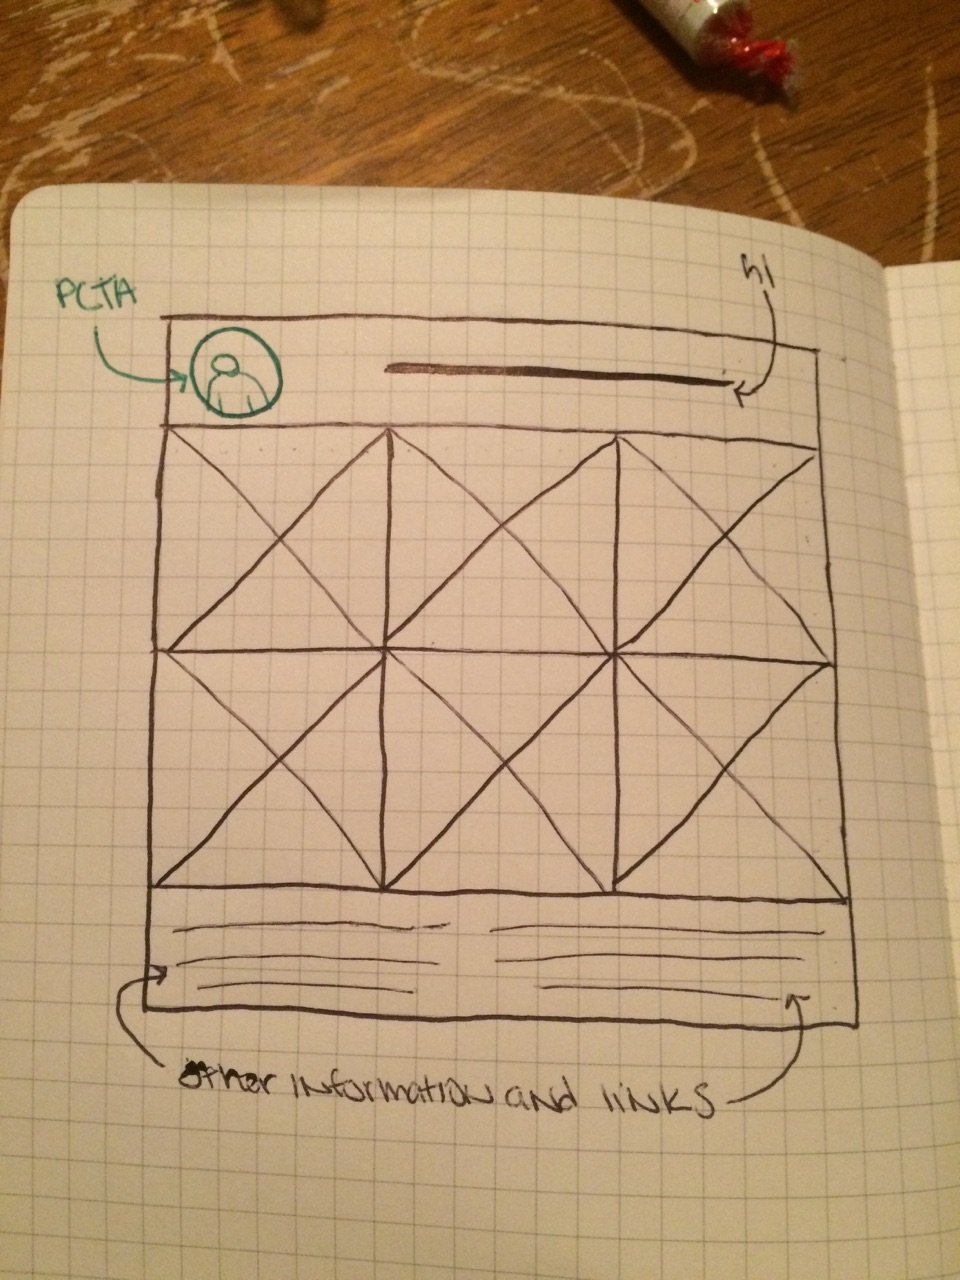 PCTA
h1
other information and links